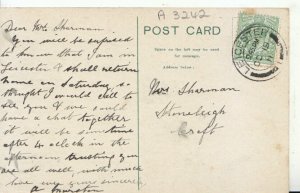 A 3242
POST CARD
The space below may be used
for message.
Address below :
LEICESTER
Dear Mrs Sherman
You will be surprised
to know that I am in
Leicester & shall return
home on Saturday, so
thought I would call to
see you & we could
have a chat together
it will be sometime
after 4 oclock in the
afternoon, trusting you
are all well, with much
love ever yours sincerely
A
Mrs Sherman
Stoneleigh
Croft